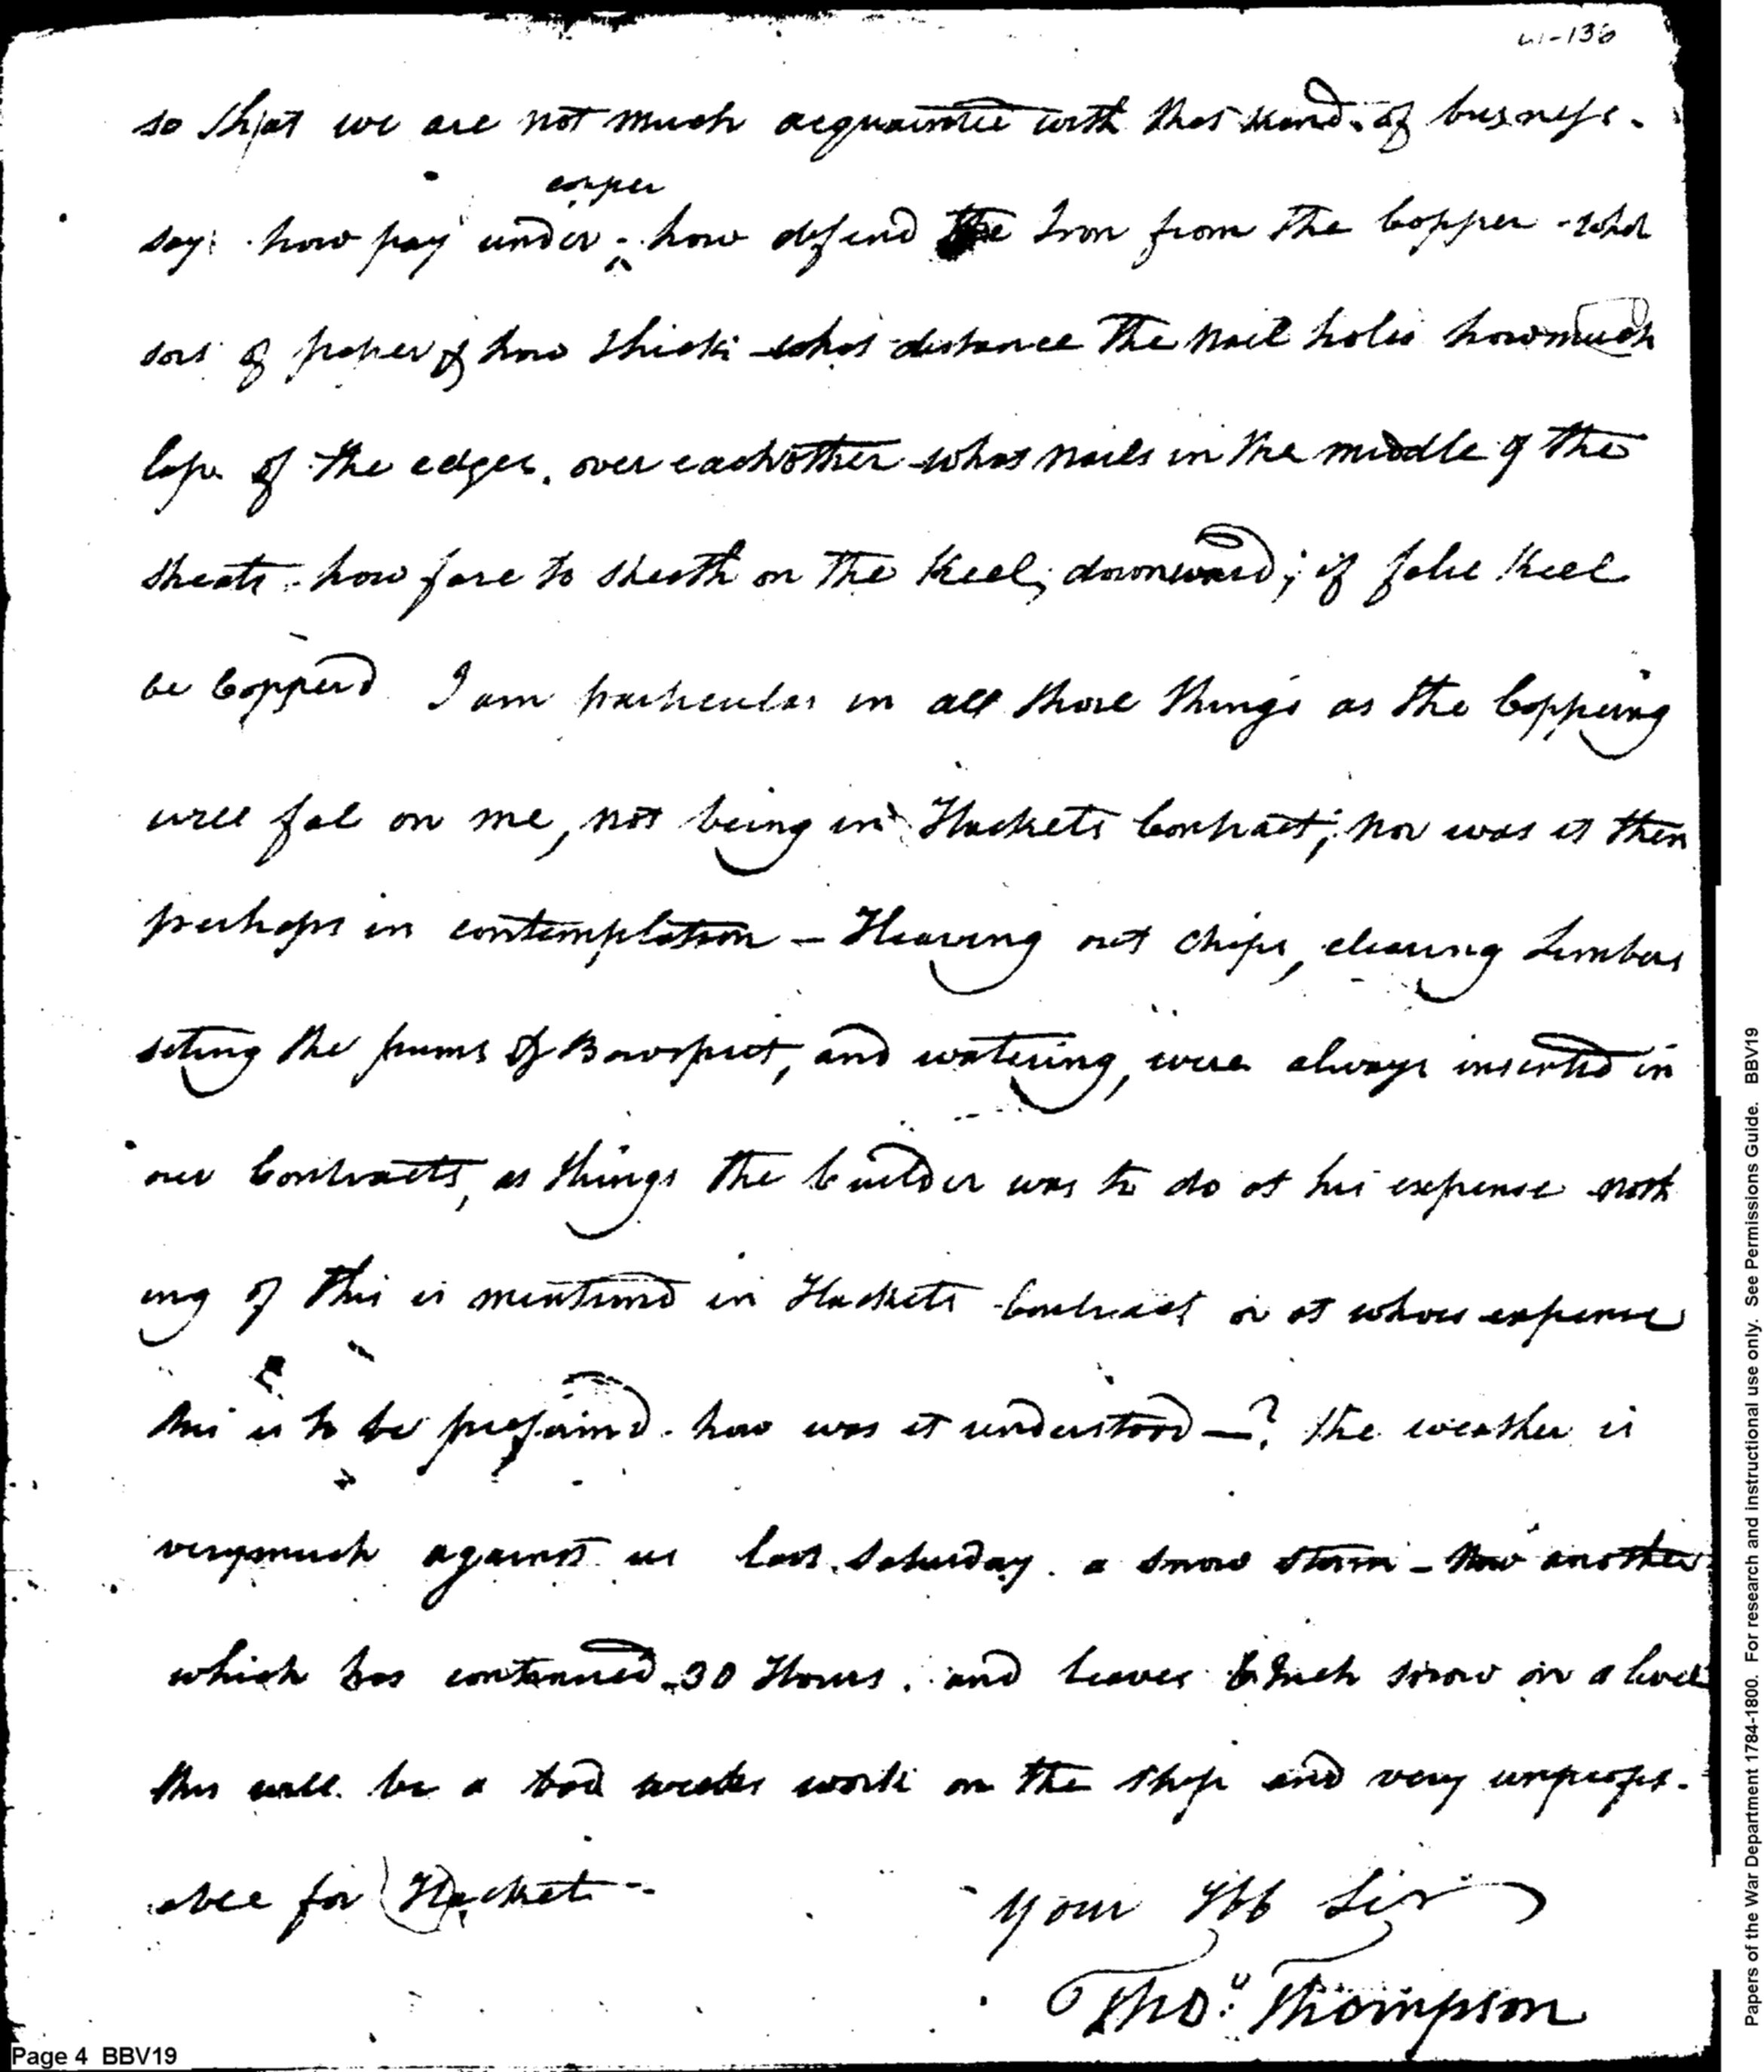 so that we are not much acquainted with that kind of busness.
copper
say how pay under - how defend the Iron from the Copper - what
sort of paper & how thick - what distance the nail holes how much
lap of the edges over each other what nails in the middle of the
sheats - how fare to sheath on the Keel, downward; if false Keel
be Copperd I am particular in all those things as the Coppering
will fal on me, not being in Hackets Contract; nor was it then
perhaps in contemplation - Heaving out chips, clearing Limbers
seting the pums & Bowsprit, and watering, were always inserted in
our Contracts, as things the builder was to do at his expense noth
ing of this is mentiond in Hackets Contract or at whose expense
this is to be prefaimd - how was it understood -? the weather is
very much against us last Saturday a snow storm - now another
which has continued 30 Hours. and leaves 6 Inch snow on a level
this will be a bad weeks work on the ship and very unprofit-
able for Hacket -
Your Hb Sir
Thos. Thompson
136
Page 4 BBV19
Papers of the War Department 1784-1800. For research and instructional use only. See Permissions Guide. BBV19